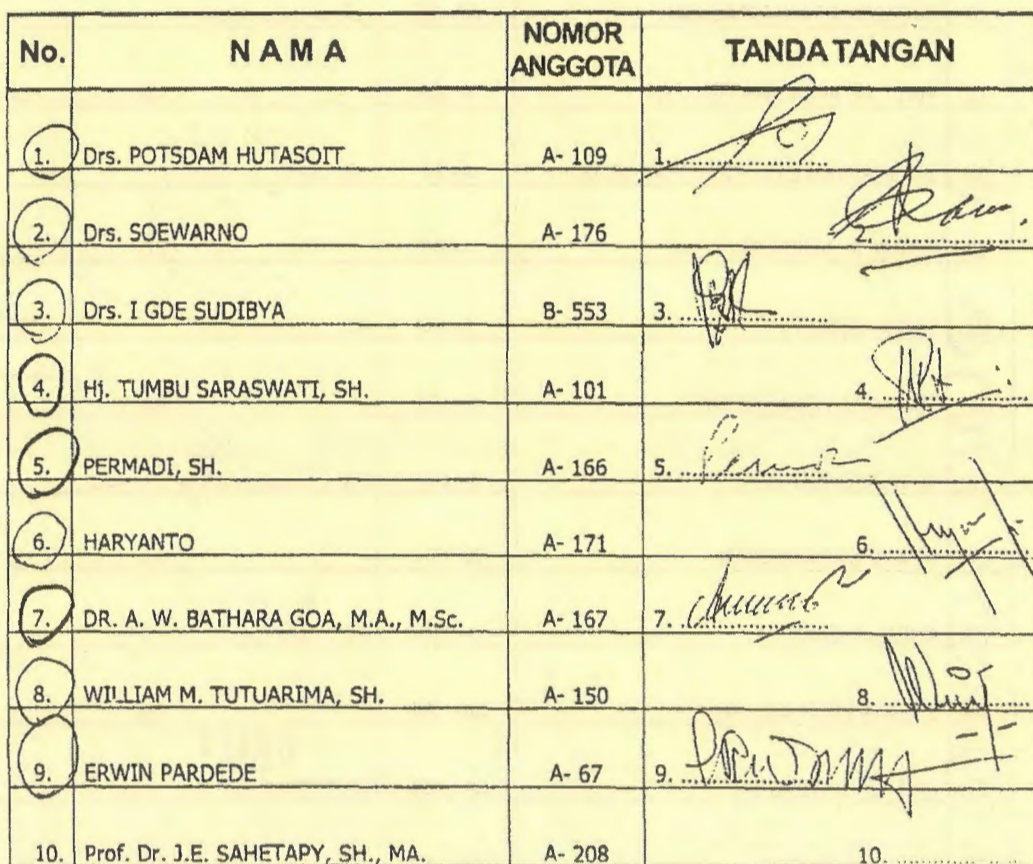 No. N A M A NOMOR ANGGOTA TANDA TANGAN
1. Drs. POTSDAM HUTASOIT A- 109 1.
2. Drs. SOEWARNO A- 176 2.
3. Drs. I GDE SUDIBYA B- 553 3.
4. Hj. TUMBU SARASWATI, SH. A- 101 4.
5. PERMADI, SH. A- 166 5.
6. HARYANTO A- 171 6.
7. DR. A. W. BATHARA GOA, M.A., M.Sc. A- 167 7.
8. WILLIAM M. TUTUARIMA, SH. A- 150 8.
9. ERWIN PARDEDE A- 67 9.
10. Prof. Dr. J.E. SAHETAPY, SH., MA. A- 208 10.